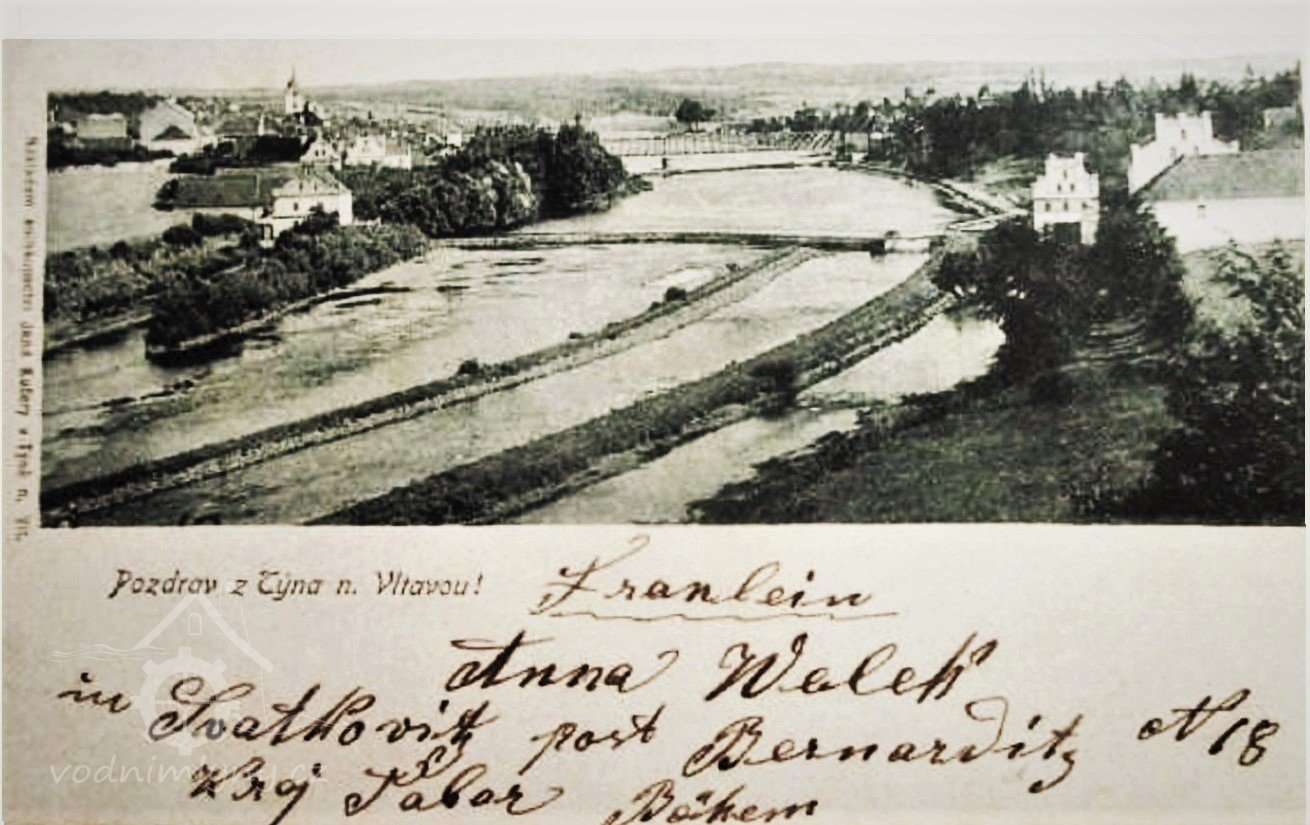 Nákladem knihkupectví Jana Kučery v Týně n. Vlt.
Pozdrav z Týna n. Vltavou!
Fraulein
Anna Walek
in Svatkovitz post Bernarditz N 18
Kraj Tabor Böhem
vodnimlyny.cz